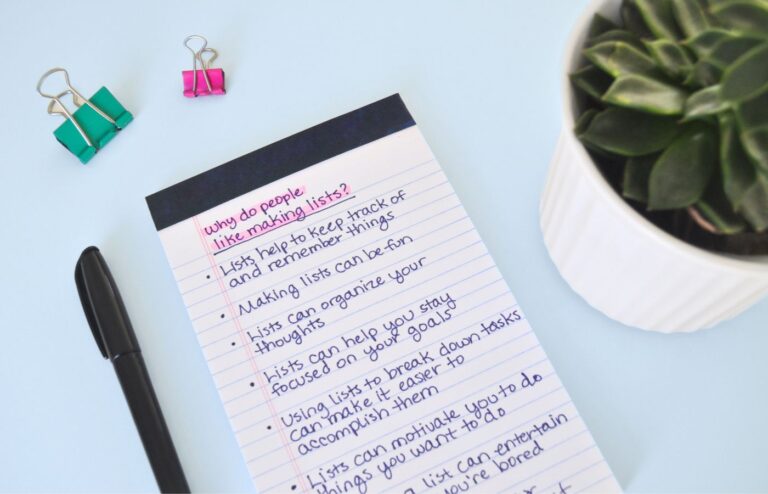 why do people
like making lists?
• Lists help to keep track of
and remember things
• Making lists can be fun
• Lists can organize your
thoughts
• Lists can help you stay
focused on your goals
• Using lists to break down tasks
can make it easier to
accomplish them
• Lists can motivate you to do
things you want to do
list can entertain
you're bored